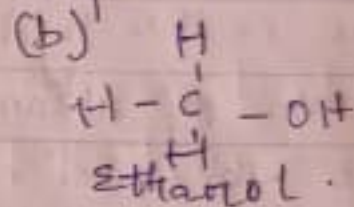 (b)'
H
H - C - OH
H
Ethanol.